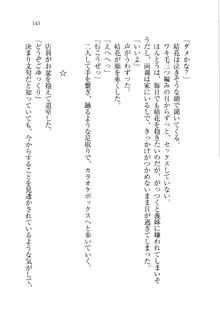 143
「ダメかな？」
結花は泣きそうな顔で聞いてくる。
ワルモ三つ編みの日からずっと、セックスしていない。
ほんとうは、毎日でも結花を抱きたい。
だが、両親は家にいるし、がっつきすぎると義妹に嫌われてしまいそうで、きっかけがつかめないまま日が過ぎてしまった。
「いいよ」
声がうわずった。
結花が顔を赤くした。
「えへへっ」
「行こうぜっ」
二人して手を繋ぎ、踊るような足取りで、カラオケボックスへと歩いていく。
☆
店員がお盆を抱えて退室した。
「どうぞごゆっくり」
決まり文句なのだが、今からすることを見透かされているような気がして、